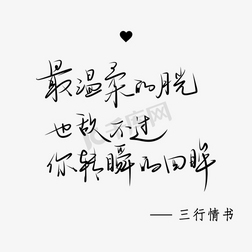 最温柔的月光
也敌不过
你转瞬的回眸
—— 三行情书